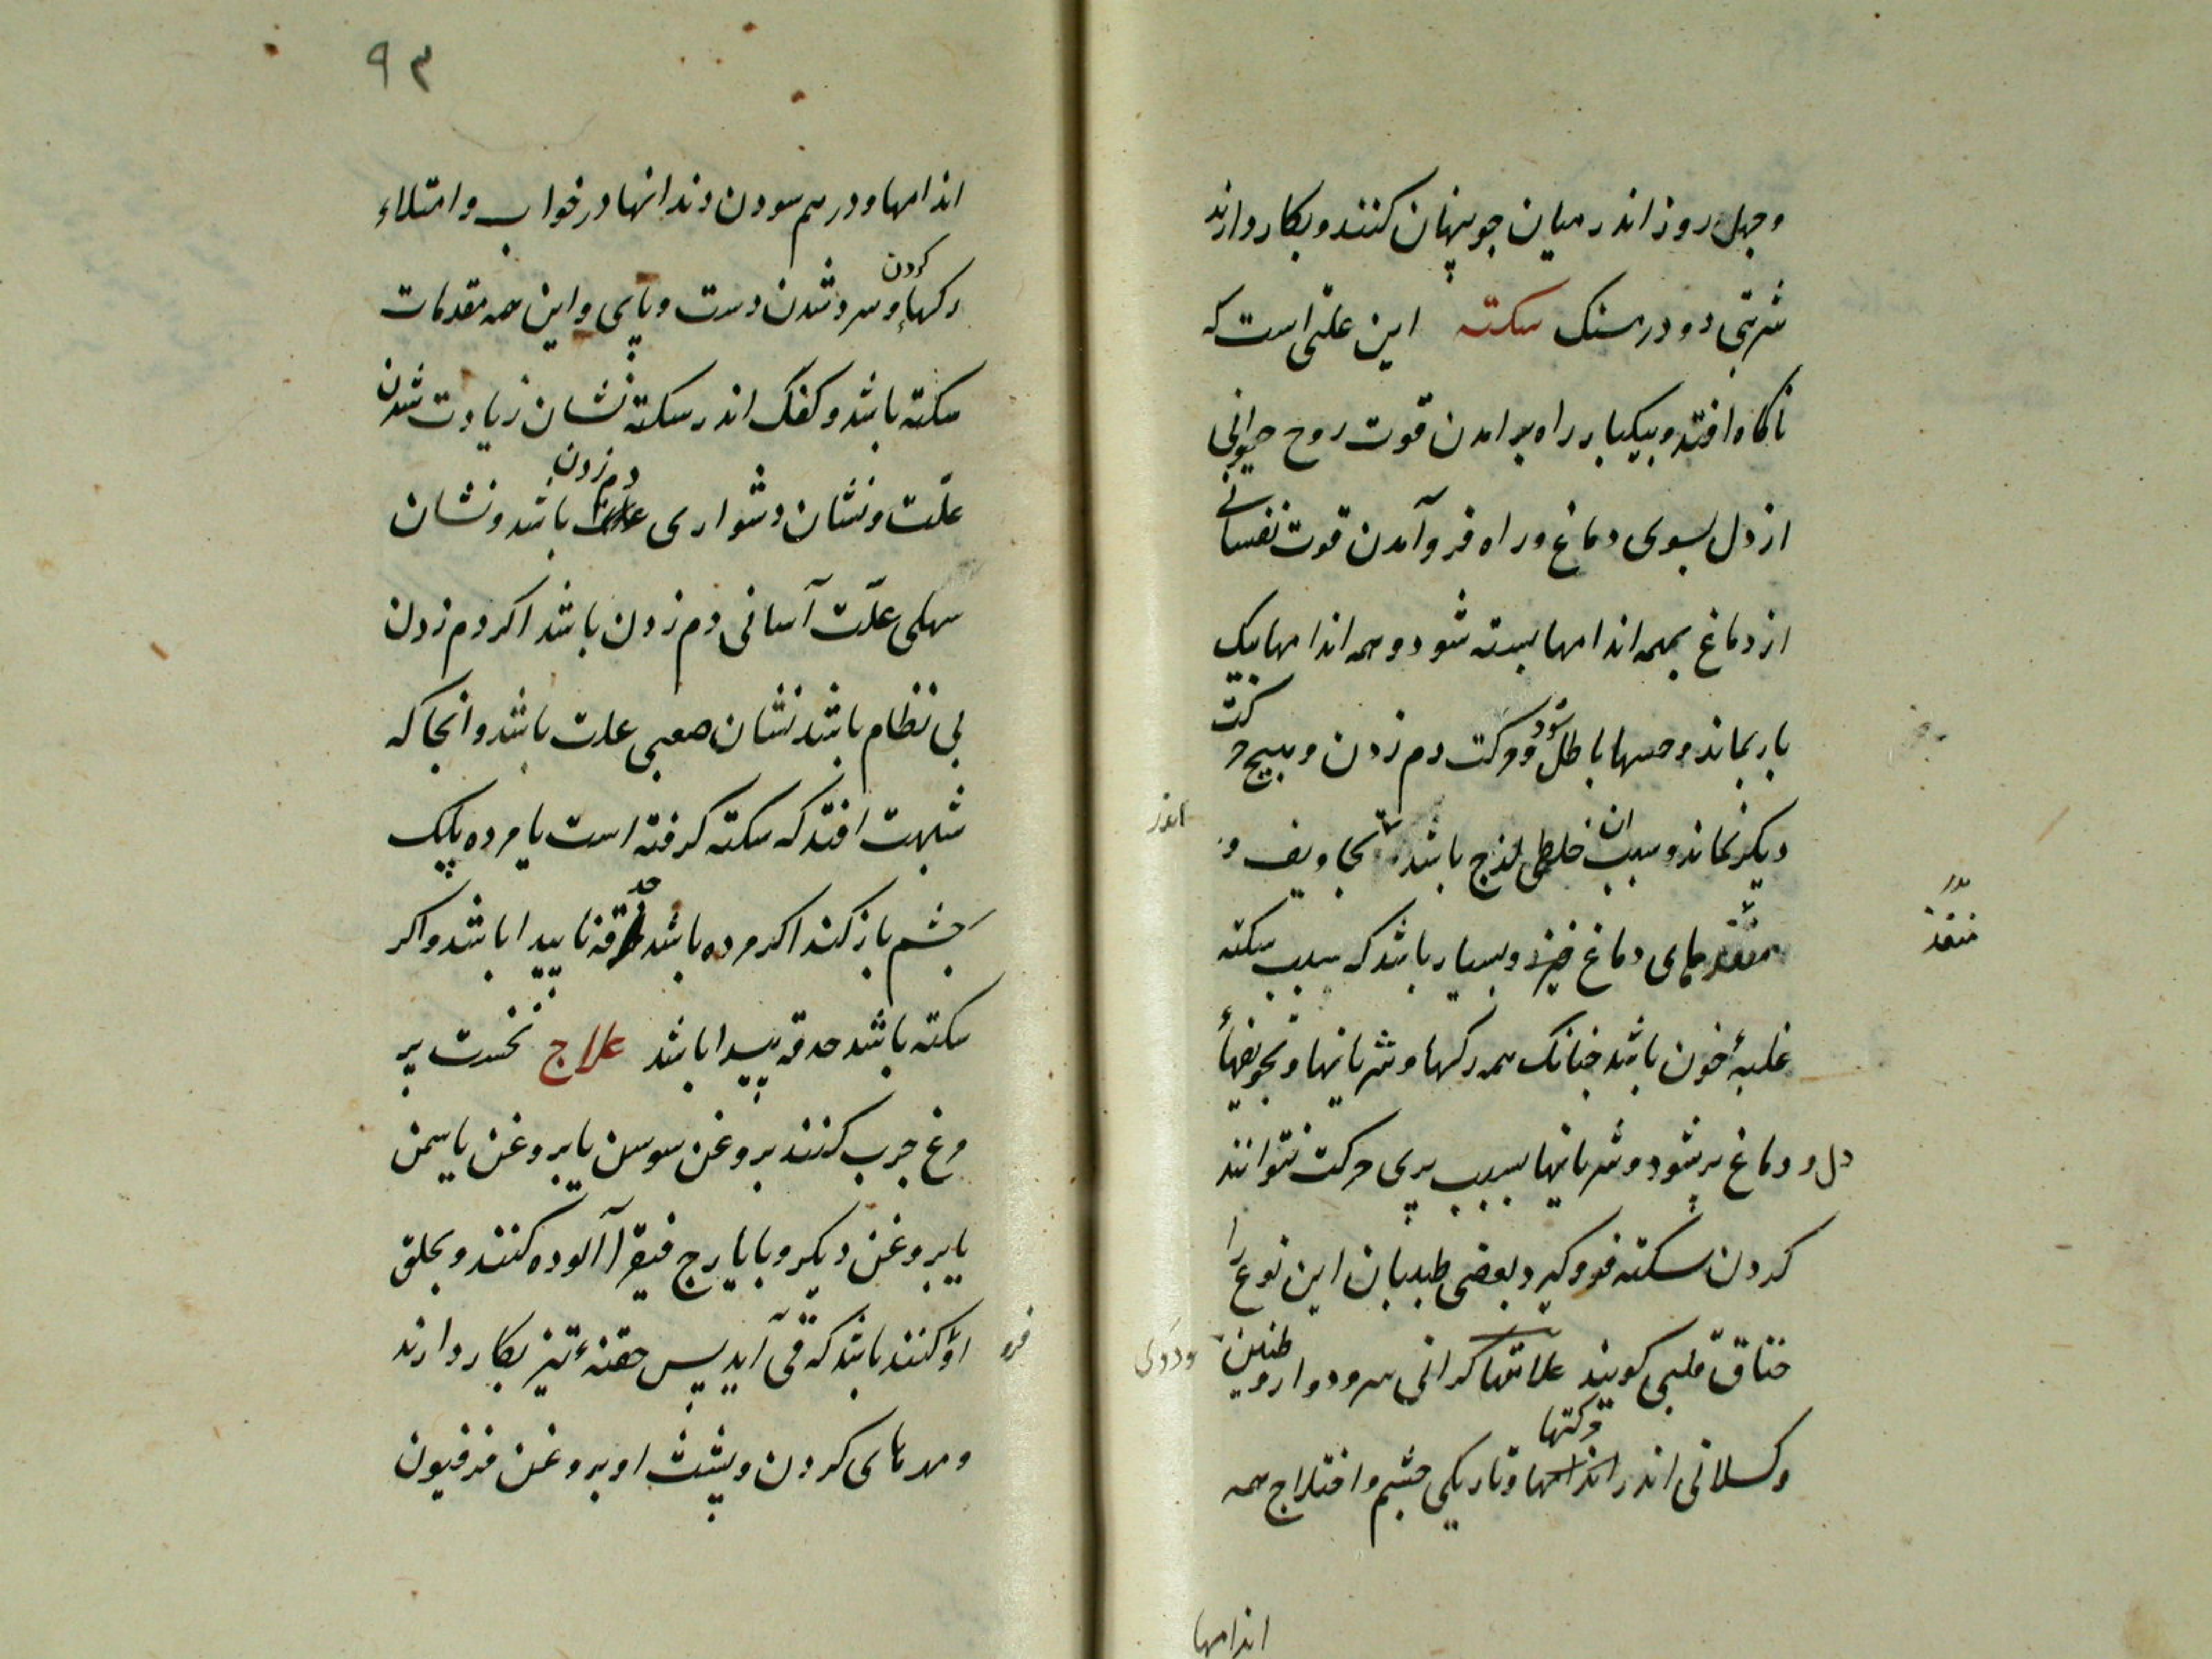 وچهل روز اندر میان جو پنهان کنند و بکار دارند
شربتی دو درمسنک سکته این علتی است که
ناکاه افتد و بیکبار راه بر امدن قوت روح حیوانی
از دل بسوی دماغ و راه فرو آمدن قوت نفسانی
از دماغ بهمه اندامها بسته شود و همه اندامها بیک
بار بماند و حسها باطل شود و حرکت دم زدن و هیچ حرکت
دیکر نماند و سبب ان خلطی لزج باشد اندر تجاویف و
منفذهای دماغ و بسیار باشد که سبب سکته
غلبهٔ خون باشد جنانک همه رکها و شریانها و تجویفهاٴ
دل و دماغ پر شود و شریانها بسبب پری حرکت نتوانند
کردن سکته فرو کیرد بعضی طبیبان این نوع را
خناق قلبی کویند علامتها کرانی سر و دوار و طنین
وکسلانی اندر حرکتها و تاریکی جشم و اختلاج همه
اندر
منفذ
اندامها
۹۳
اندامها و در هم سودن دندانها در خواب و امتلاء
رکها و سرد شدن کردن دست و پای و این همه مقدمات
سکته باشد و کفک اندر سکته نشان زیادت شدن
علّت و نشان دشواری دم زدن باشد و نشان
سهلی علّت آسانی دم زدن باشد اکر دم زدن
بی نظام باشد نشان صعبی علت باشد و انجا که
شبهت افتد که سکته کرفته است یا مرده پلک
جشم باز کند اکر مرده باشد حدقه ناپیدا باشد و اکر
سکته باشد حدقه پیدا باشد علاج نخست پر
مرغ جرب کنند بروغن سوسن یا بروغن یاسمن
یا بروغن دیکر و با یارج فیقرا آلوده کنند و بحلق
او فرو کنند باشد که قی آید پس حقنهٴ تیز بکار دارند
و مهرهای کردن و پشت او بروغن فرفیون